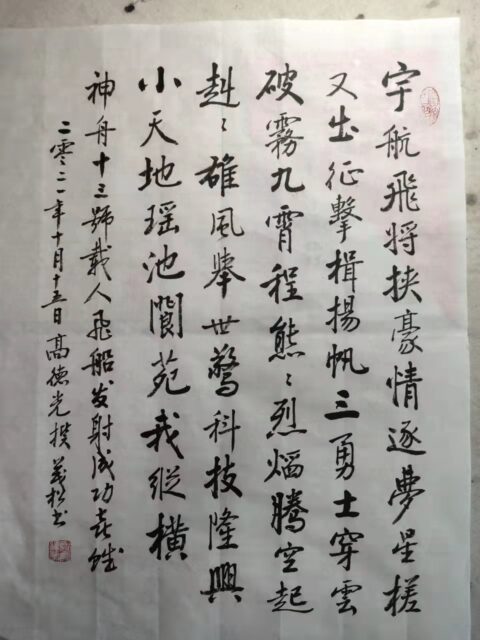 宇航飛將挾豪情逐夢星槎
又出征擊楫揚帆三勇士穿雲
破霧九霄程熊〻烈焰騰空起
赳〻雄風舉世驚科技隆興
小天地瑶池閬苑我縱横
神舟十三號載人飛船发射成功喜賦
二零二一年十月十五日高德光撰 義松书